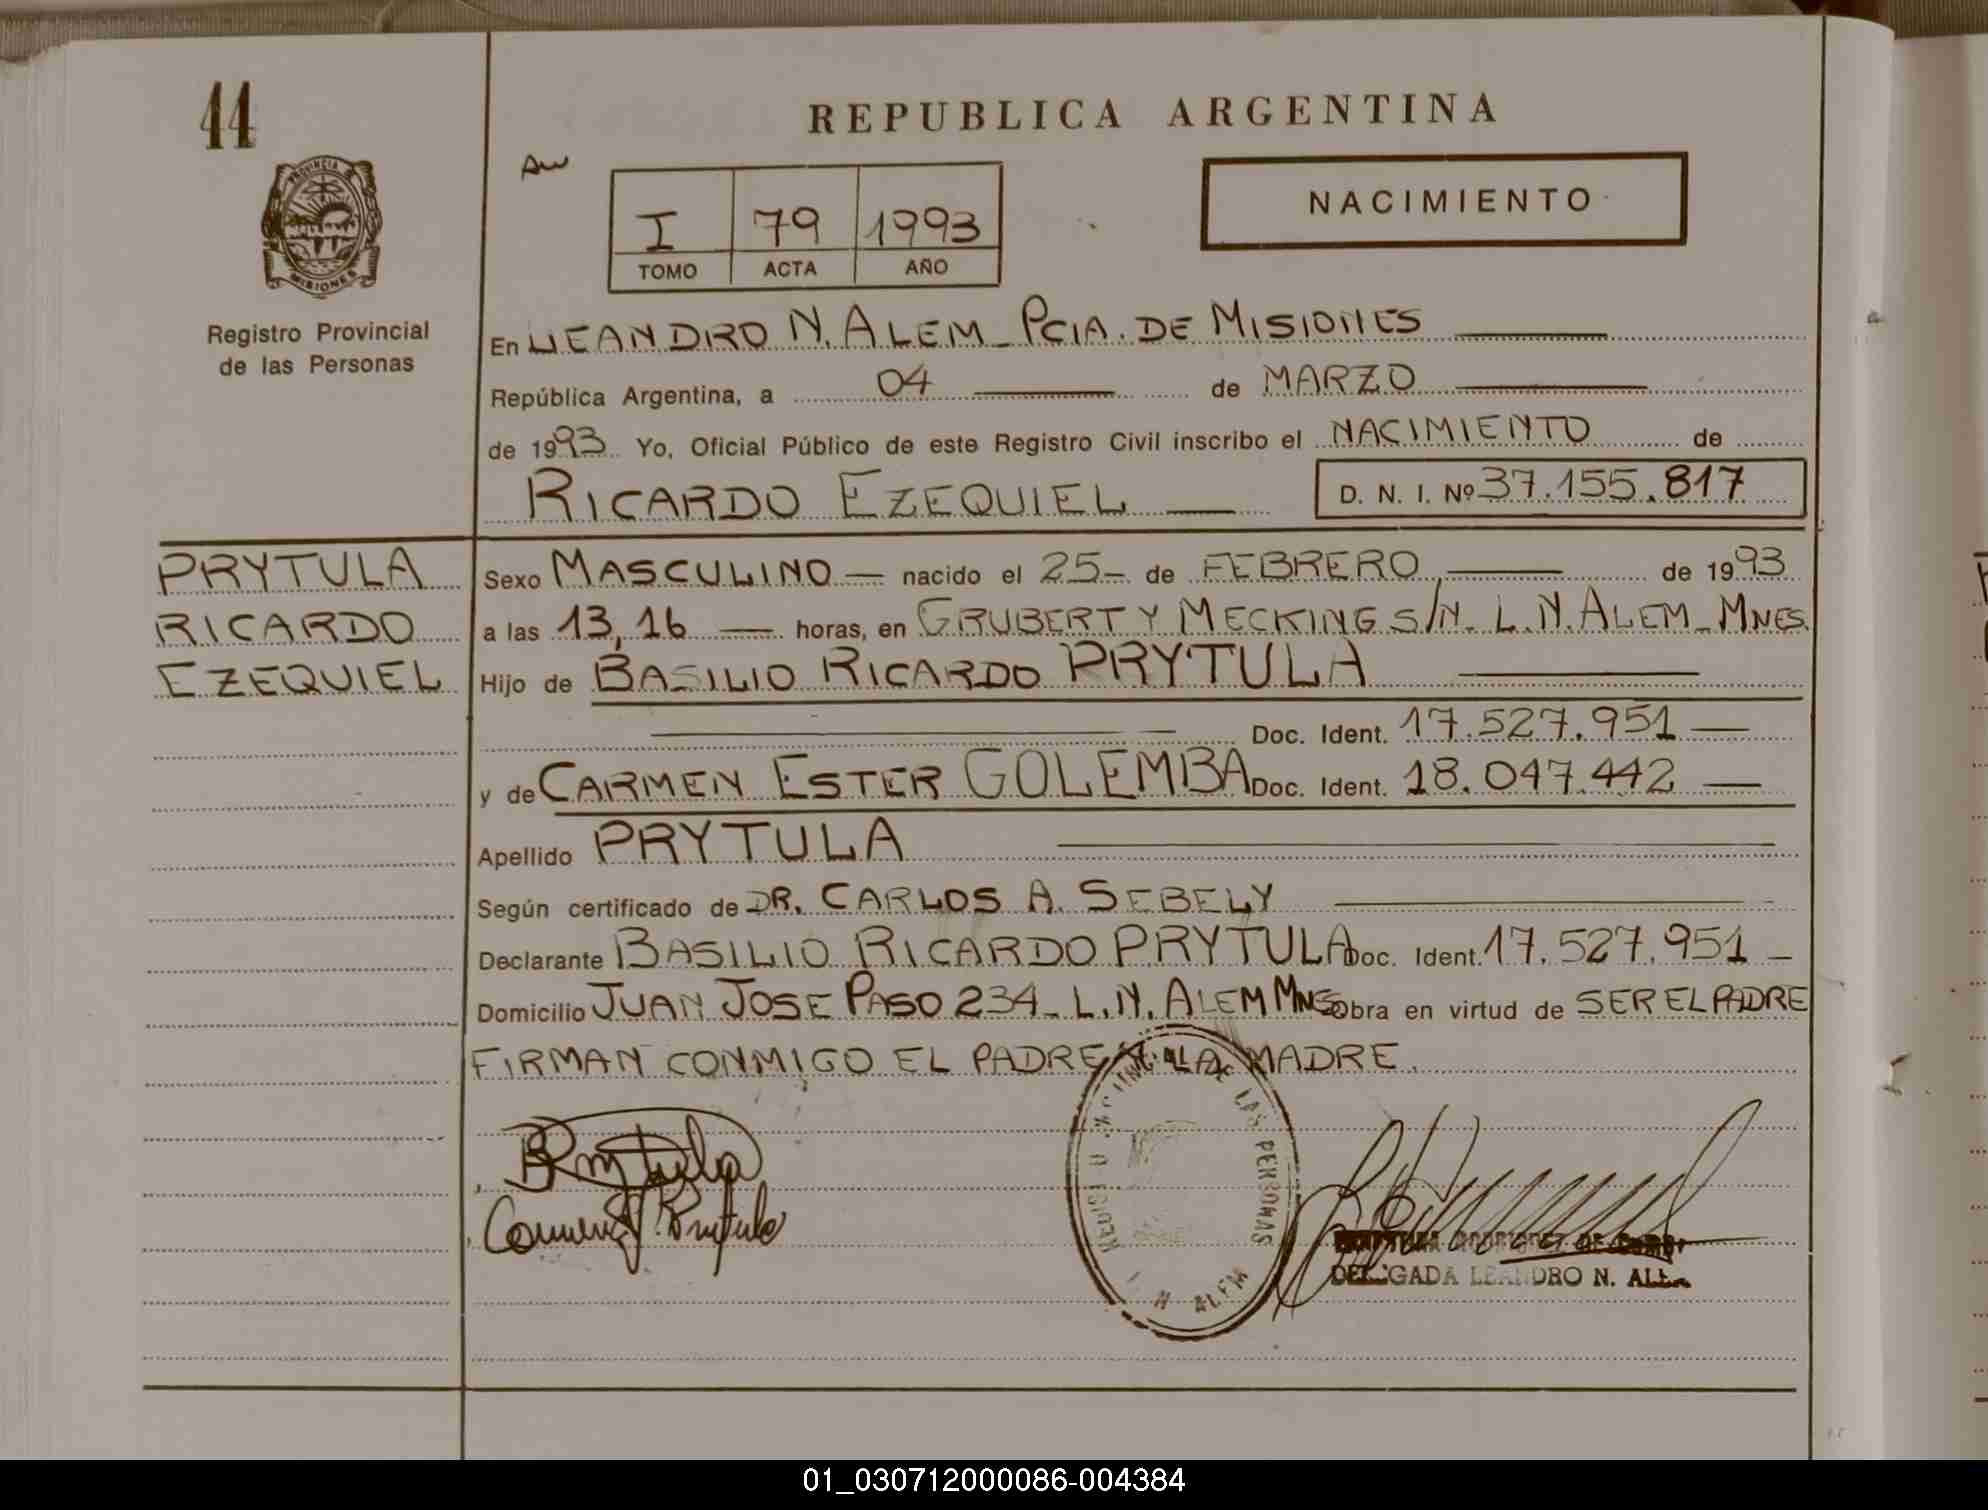 44
REPUBLICA ARGENTINA
PROVINCIA DE
MISIONES
I 79 1993
TOMO ACTA AÑO
NACIMIENTO
Registro Provincial
de las Personas
En LEANDRO N. ALEM_ PCIA. DE MISIONES
República Argentina, a 04 de MARZO
de 1993 Yo, Oficial Público de este Registro Civil inscribo el NACIMIENTO de
RICARDO EZEQUIEL — D. N. I. Nº 37.155.817
PRYTULA
RICARDO
EZEQUIEL
Sexo MASCULINO — nacido el 25- de FEBRERO de 1993
a las 13,16 — horas, en GRUBERT Y MECKING S/N. L.N. ALEM_ MNES.
Hijo de BASILIO RICARDO PRYTULA
Doc. Ident. 17.527.951 —
y de CARMEN ESTER GOLEMBA Doc. Ident. 18.047.442 —
Apellido PRYTULA
Según certificado de DR. CARLOS A. SEBELY
Declarante BASILIO RICARDO PRYTULA Doc. Ident. 17.527.951 —
Domicilio JUAN JOSE PASO 234_ L.N. ALEM MNES Obra en virtud de SER EL PADRE
FIRMAN CONMIGO EL PADRE Y LA MADRE.
DE LAS PERSONAS
N ALEM
BPrytula
Carmen G. Prytula
RODRIGUEZ DE
DELEGADA LEANDRO N. ALEM
01_030712000086-004384